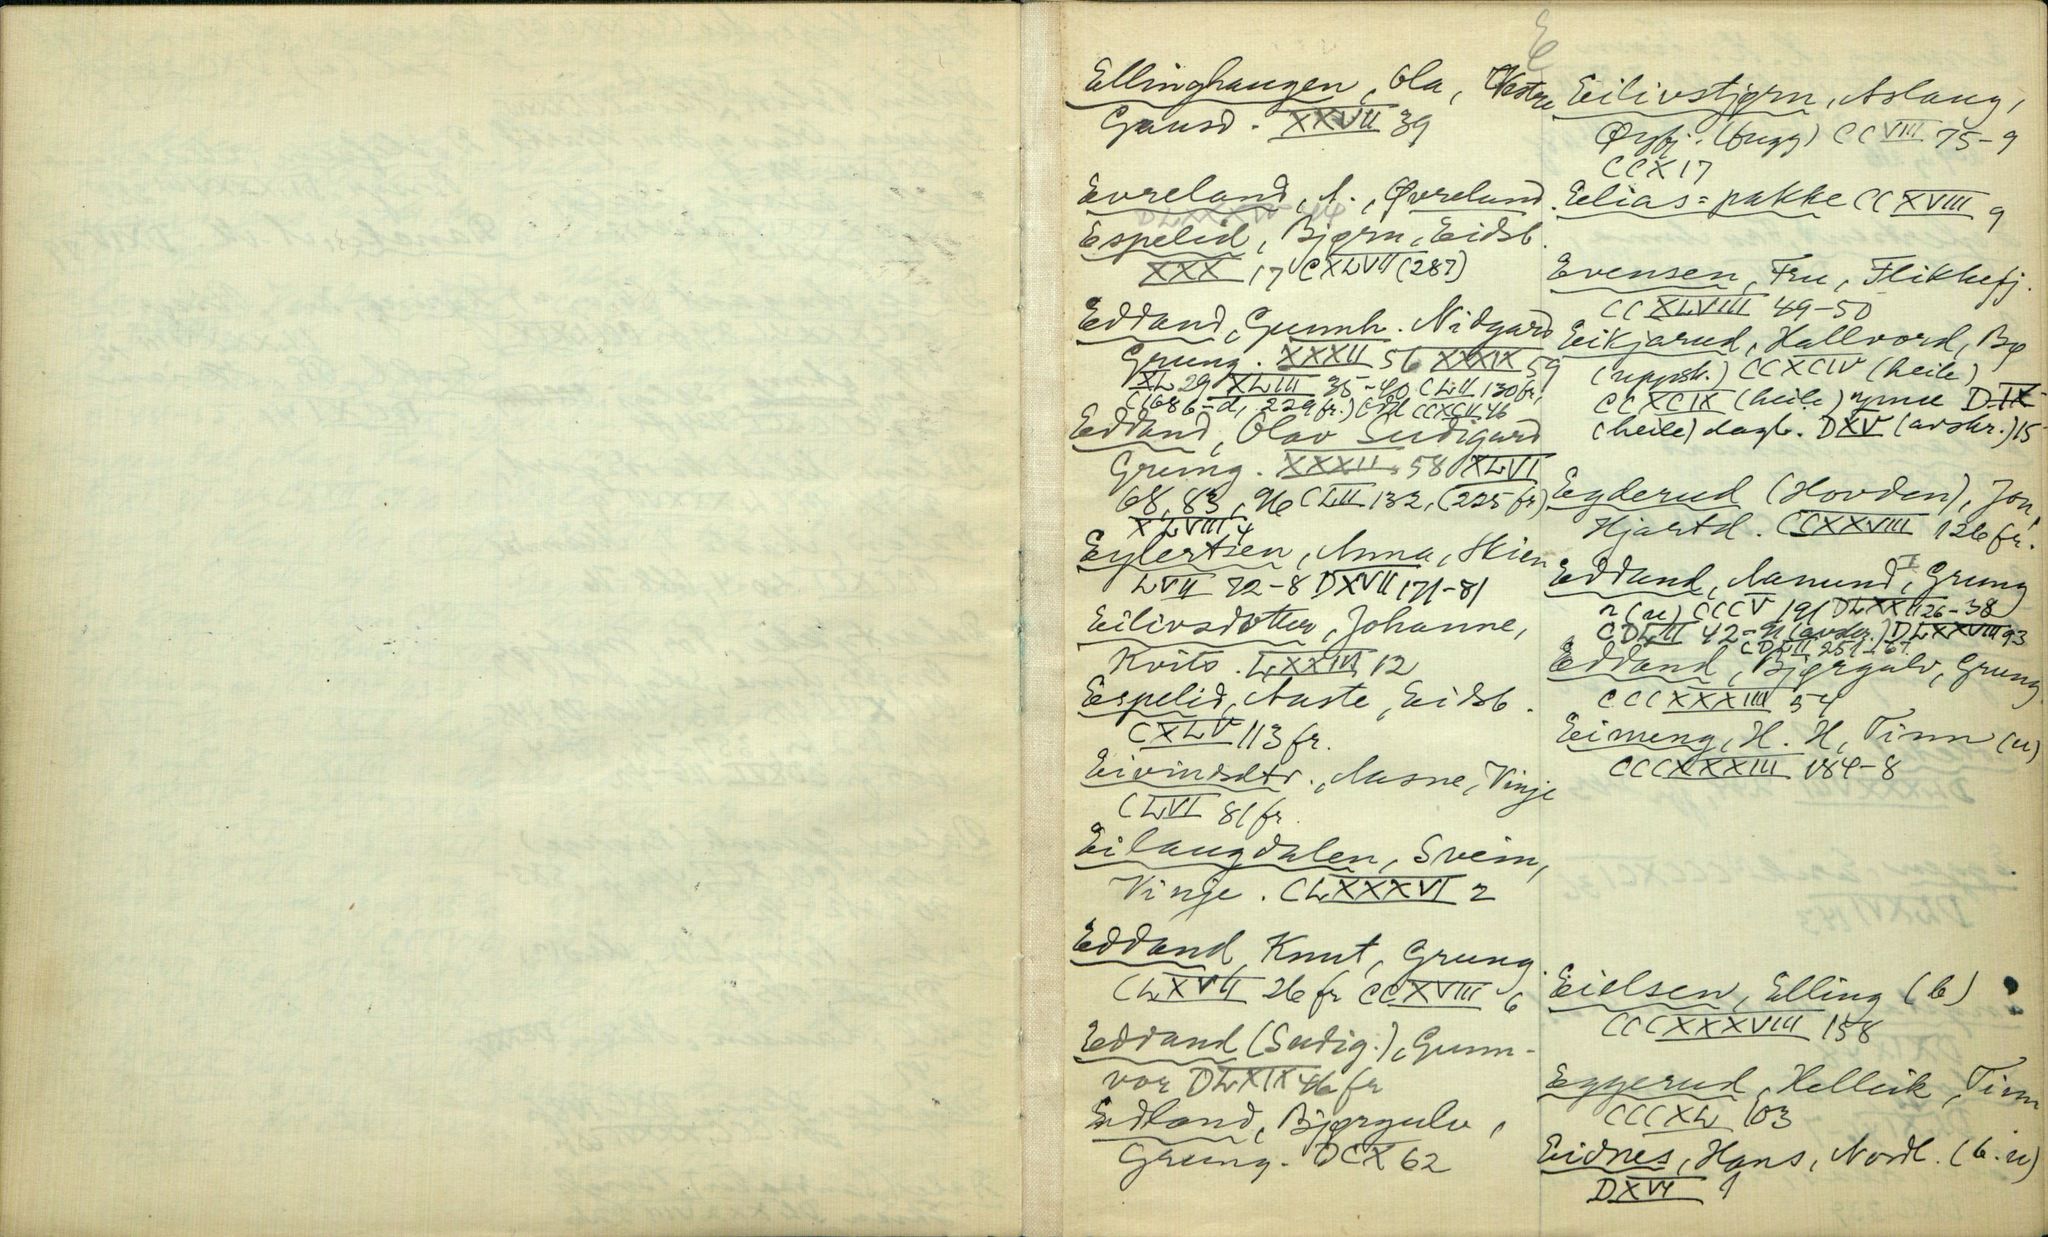 E
Ellinghaugen, Ola, Vestre
Gausd. XXVII 39
Evreland, A., Øvreland.
DLXXXIV 44
Espelid, Bjørn, Eidsb.
XXX 17 CXLVII (287)
Eddand, Gunnh. Nidgard
Grung. XXXII 56 XXXIX 59
XL 29 XLIII 35-40, CLII 130 fr,
229 fr.) CCXCII 46
Eddand, Olav Sudigard
Grung. XXXII 58 XLVI
68, 83, 96 CLII 132, (225 fr)
XLVIII 4
Eylertsen, Anna, Skien
LVII 72-8 DXVII 171-81
Eilivsdotter, Johanne,
Kvits. LXXIII 12
Espelid, Aaste, Eidsb.
CXLV 113 fr.
Eivindsdtr., Aasne, Vinje
CLVI 81 fr.
Eilaugdalen, Svein,
Vinje. CLXXXVI 2
Eddand, Knut, Grung.
CLXVII 26 fr CCXVIII 6
Eddand (Sudig.), Gunn-
vor DLXIX 46 fr
Edland, Bjørgulv,
Grung. DCX 62
Eilivstjørn, Aslaug,
Øyfj. (bugg) CCVIII 75-9
CCX 17
Elias-pakke CCXVIII 9
Evensen, Fru, Flekkefj.
CCXLVIII 49-50
Eikjarud, Hallvord, Bø
(uppsk.) CCXCIV (heile)
CCXCIX (heile) ymse DIX
(heile) dagb. DXV (avskr.) 15
Egderud (Hovden), Jon,
Hjartd. CCXXVIII 126 fr.
Eddand, Aamund, Grung
(u) CCCV 191 DLXXI 26-38
CDLII 42-71 (avskr.) DLXXVIII 93
CDLII 251-67
Eddand, Bjørgulv, Grung.
CCCXXXIII 54
Eimeng, H. H, Tinn (u)
CCCXXXIII 184-8
Eielsen, Elling (b)
CCCXXXVIII 158
Eggerud, Helleik, Tinn
CCCXL 103
Eidnes, Hans, Nordl. (b.u)
DXVI 9